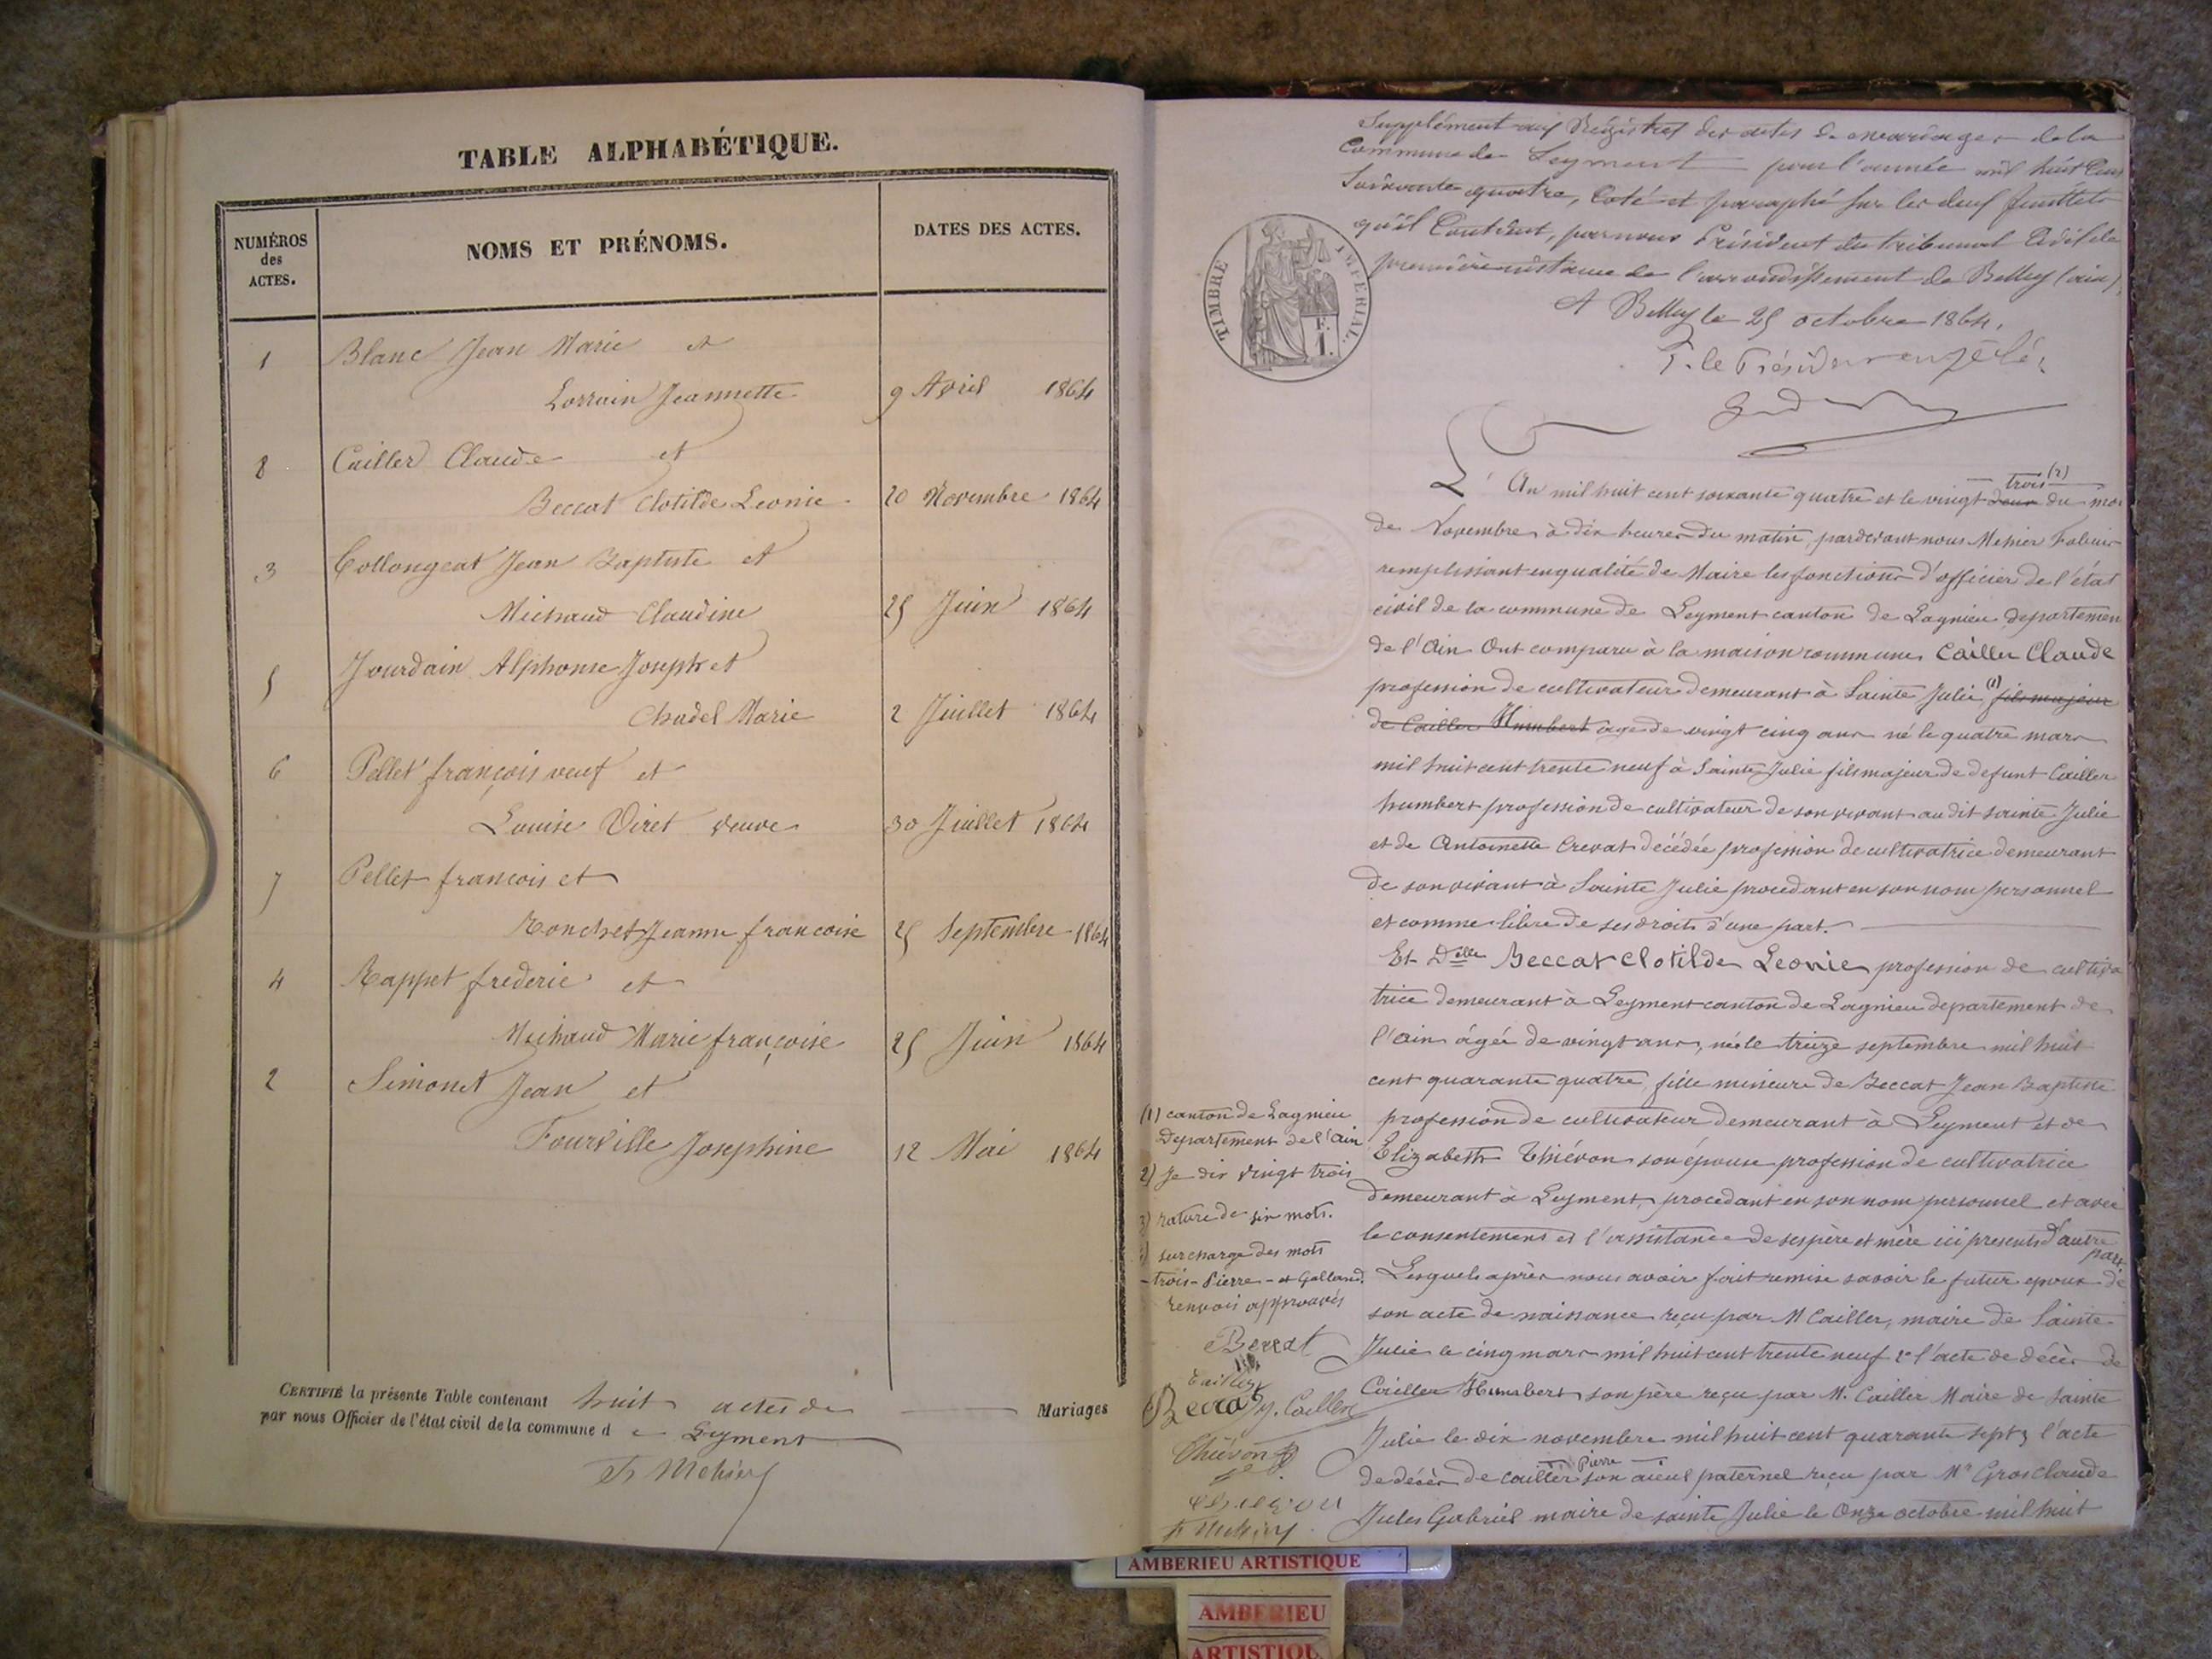 TABLE ALPHABÉTIQUE.
NUMÉROS
des
ACTES.
NOMS ET PRÉNOMS.
DATES DES ACTES.
1 Blanc Jean Marie et
Lorrain Jeannette 9 Avril 1864
8 Cailler Claude et
Beccat Clotilde Leonie 20 Novembre 1864
3 Collongeat Jean Baptiste et
Michaud Claudine 25 Juin 1864
5 Jourdain Alphonse Joseph et
Chudel Marie 2 Juillet 1864
6 Pellet françois veuf et
Louise Viret veuve 30 Juillet 1864
7 Pellet francois et
Ronchet Jeanne francoise 25 Septembre 1864
4 Rappet frederic et
Michaud Marie françoise 25 Juin 1864
2 Simonet Jean et
Fourville Josephine 12 Mai 1864
CERTIFIÉ la présente Table contenant huit actes de Mariages
par nous Officier de l'état civil de la commune d e Leyment
Supplément aux Régistres des actes de mariages de la
Commune de Leyment pour l'année mil huit Cent
Soixante quatre, Coté et paraphé sur les deux feuillets
qu'il Contient, par nous Président du tribunal Civil de
première instance de l'arrondissement de Belley (ain),
A Belley le 25 octobre 1864.
TIMBRE IMPERIAL.
F.
1.
L'An mil huit cent soixante quatre et le vingt deux trois (2) du mois
de Novembre à dix heures du matin, pardevant nous Mehier
remplissant en qualité de Maire les fonctions d'officier de l'état
civil de la commune de Leyment canton de Lagnieu departement
de l'Ain Ont comparu à la maison commune, Cailler Claude
profession de cultivateur demeurant à Sainte Julie (1) fils majeur
de Cailler Humbert age de vingt cinq ans né le quatre mars
mil huit cent trente neuf à Sainte Julie fils majeur de defunt Cailler
humbert profession de cultivateur de son vivant au dit sainte Julie
et de Antoinette Crevat décédée profession de cultivatrice demeurant
de son vivant à Sainte Julie procedant en son nom personnel
et comme libre de ses droits d'une part.
Et Delle Beccat Clotilde Leonie profession de cultiva
trice demeurant à Leyment canton de Lagnieu departement de
l'Ain âgée de vingt ans, née le treize septembre mil huit
cent quarante quatre, fille mineure de Beccat Jean Baptiste
profession de cultivateur demeurant à Leyment et de
Elizabeth Thiévon son épouse profession de cultivatrice
demeurant à Leyment, procedant en son nom personnel et avec
le consentement et l'assistance de ses père et mère ici presents d'autre
part
Lesquels après nous avoir fait remise savoir le futur epoux de
son acte de naissance reçu par M Cailler, maire de Sainte
Julie le cinq mars mil huit cent trente neuf 2° l'acte de décès de
Cailler Humbert, son père reçu par M. Cailler Maire de Sainte
Julie le dix novembre mil huit cent quarante sept 3 l'acte
de décès de cailler Pierre son aïeul paternel reçu par Mr Grosclaude
Jules Gabriel maire de sainte Julie le Onze octobre mil huit
(1) canton de Lagnieu
Departement de l'Ain
2) Je dis vingt trois
3) rature de six mots.
surcharge des mots
- trois - Pierre - et Galland.
renvois approuvés
Beccat
Cailler
Beccat M. Cailler
Thiévon
AMBERIEU ARTISTIQUE
AMBERIEU
ARTISTIQU